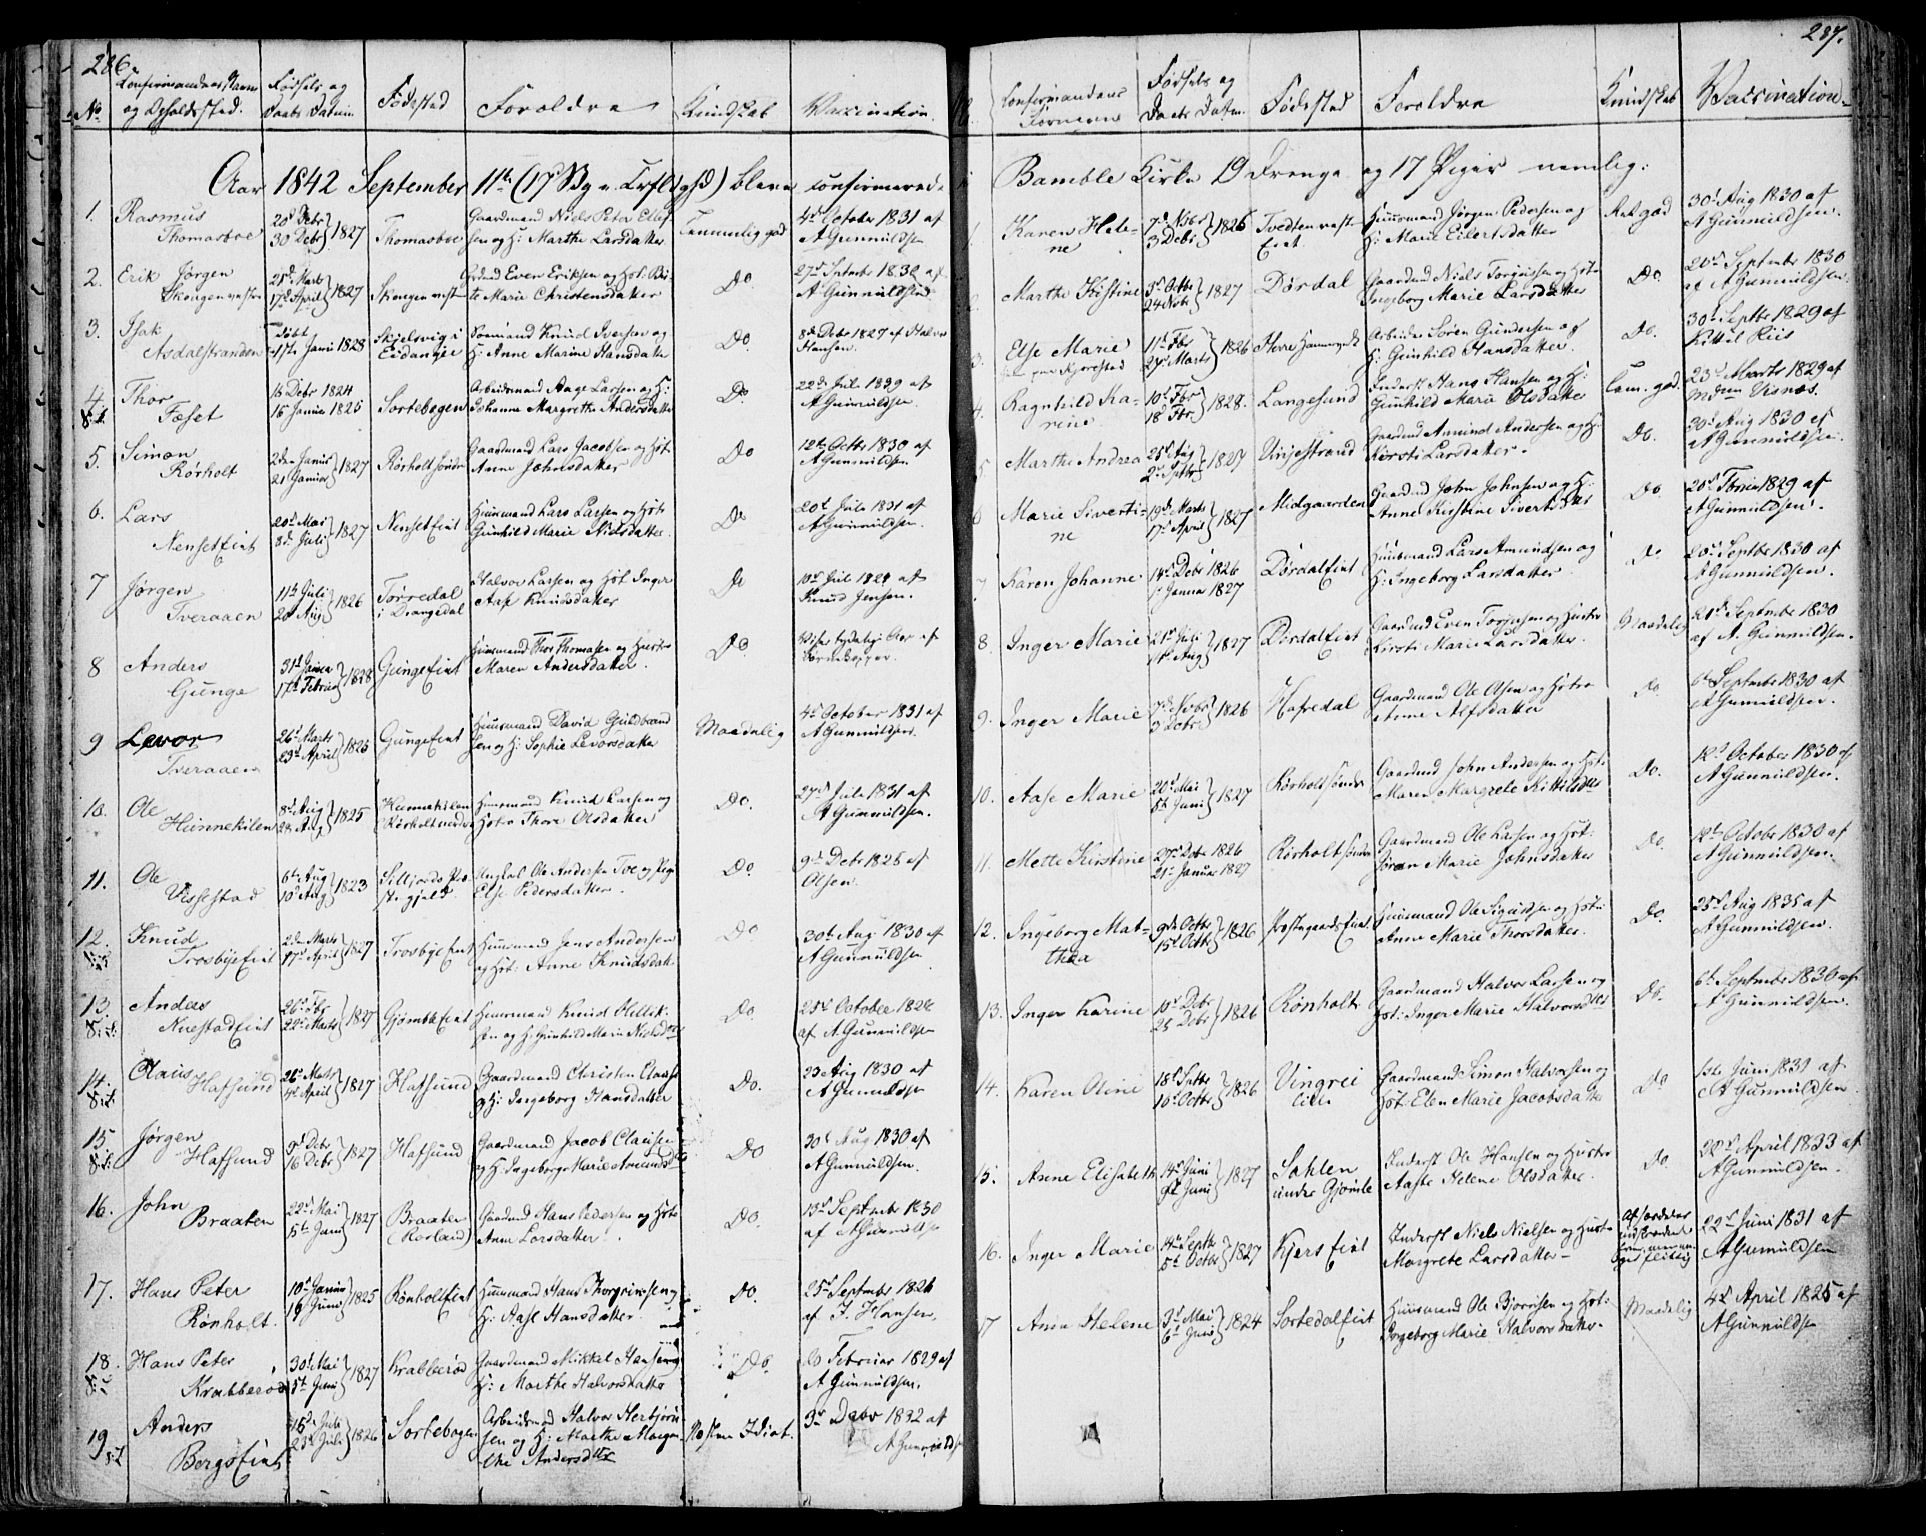 286.
No.
Confirmandens Navn
og Opholdssted.
Fødsels og
Daabs Datum
Fødested
Forældre
Kundskab
Vaccination.
Aar 1842 September 11te (17 Sg. e. Trf.) bleve confirmerede
1. Rasmus
Thomasboe
20d Febr
30 Debr 1827
Thomasboe
Gaardmand Niels Peter Ellef
sen og H: Marthe Larsdatter
Temmelig god
4d October 1831 af
A Gunnuldsen
2. Erik Jørgen
Skougen vestre
25d Marts
17d April 1827
Skougen vest
Grdmd Even Eriksen og Hst: Bir
te Marie Christensdatter
Do
27d Septmbr 1830 af
A Gunnuldsen
3. Isak
Asdalstranden
Døbt
1ste Janu 1828
Skjelsvig i
Eidanger
Sømand Knud Iversen og
H: Anne Marine Hansdatter
Do
8de Debr 1827 af Halvor
Hansen.
4. Thor
Fæset
16 Debr 1824
16 Januar 1825
Sortebogen
Arbeidsmand Aage Larsen og H:
Johanne Margrethe Andersdatter
Do
22d Juli 1829 af
A Gunnuldsen
5. Simon
Rørholt
2den Januar
21 Januar 1827
Rørholt søndre
Gaardmand Lars Jacobsen og Hst:
Anne Johnsdatter
Do
12te Octbr 1830 af
A Gunnuldsen
6. Lars
Nenset Eiet
20d Mai
8d Juli 1827
Nenset Eiet
Huusmand Lars Larsen og Hst:
Gunhild Marie Nielsdatter.
Do
20d Juli 1831 af
A Gunnuldsen.
7 Jørgen
Tveraaen
11te Juli
20d Aug 1826
Tørredal
i Drangedal
Halvor Larsen og Hst. Inger
Aase Knudsdatter
Do
10d Juli 1829 af
Knud Jensen.
8 Anders
Gunge
31d Janua
17d Februar 1828
Gunge Eiet
Huusmand Thor Thomasen og Hustru
Maren Andersdatter.
Do
Viser tydelige Ar af
9 Levor
Tveraaen
26d Marts
23d April 1826
Gunge Eiet
Huusmand David Guldbrand
sen og H: Sophie Levorsdatter
Maadelig
4d October 1831 af
A Gunnuldsen.
10. Ole
Hunnekilen
8d Aug
28 Aug 1825
Hunnekilen
(Rørholt nordre
Huusmand Knud Larsen og
Hstr Thore Olsdatter
Do.
27d Juli 1831 af
A Gunnuldsen.
11. Ole
Vissestad
6te Aug
10d Aug 1823
Silljords Præ
stegjeld.
Ungkal Ole Andersen Toe og Pige
Else Pedersdatter.
Do.
9de Debr 1828 af
Olsen.
12. Knud
Trosbye Eiet
2den Marts
17d April 1827
Trosbye Eiet
Huusmand Jens Andersen
og Hst: Anne Knudsdat
Do
30te Aug 1830 af
A Gunnuldsen
13. Anders
Nuestad Eiet
26d Fbr
22d Marts 1827
Gjømble Eiet
Huusmand Knud Ollik
sen og H: Gunhild Marie Nielsdtr
Do.
25d October 1828
af A Gunnuldsen
14. Claus
Hafsund
26d Marts
4d April 1827
Hafsund
Gaardmand Christen Clausen
og H: Ingeborg Hansdatter
Do.
23 Aug 1830 af
A Gunnuldsen
15 Jørgen
Hafsund
9d Debr
16 Debr 1827
Hafsund
Gaardmand Jacob Clausen
og H: Ingeborg Marie Amunds
Do
30te Aug 1830 af
A Gunnuldsen.
16. John
Braaten
22d Mai
5te Juni 1827
Braaten
(Rørland)
Gaardmd Hans Pedersen og Hstr
Anne Larsdatter.
Do.
13d Septmbr 1830
af A Gunnuldsen
17. Hans Peter
Rønholt.
10de Januar
19 Juni 1825
Rønholt Eiet
Huusmand Hans Thorgrimsen og
H: Aase Hansdatter
Do.
25d Septmbr 1826
af J. Hansen.
18. Hans Peter
Krabberød
30d Mai
5te Juni 1827
Krabberød
Gaardmand Mikkel Hansen og
H: Marthe Halvorsdatter
Do.
20 Februar 1829 af
A Gunnuldsen.
19 Anders
Bergs Eiet
15de Juli
23d Juli 1826
Sortebogen
Arbeidsmd Halvor Herbjørn
sen og H: Marthe Margre
the Andersdtr
Næsten Idiot.
9de Debr 1832 af
A Gunnuldsen
287.
Confirmandens
Fornavne
Fødsels og
Daabs Datum
Fødested
Forældre
Kundskab
Vaccination.
Bamble Kirke 19 Drenge og 17 Piger nemlig:
1. Karen Hele-
ne
7d Nobr
3 Debr 1826
Tvedten vestre
Eiet.
Huusmand Jørgen Pedersen og
H: Marie Eilertsdatter
Ret god
30d Aug 1830 af
A Gunnuldsen.
2. Marthe Kistine
3d Octbr
24 Nobr 1827
Dørdal
Gaardmd Niels Torgiussen og Hstr
Ingborg Marie Larsdatter
Do.
20d Septmbr 1830
af A Gunnuldsen
3. Else Marie
11te Fbr
27d Marts 1826
Herre Hammergods
Arbeider Søren Gundersen og
H: Gunhild Hansdatter.
Do.
30d Septbr 1829 af
Kittel Riis
4. Ragnhild Ka-
rine
10d Fbr
18 Fbr 1828.
Langesund
Inderst Hans Hansen og H:
Gunhild Marie Olsdatter
Tem. god.
23d Marts 1829 af
Mdm Visnæs.
5. Marthe Andrea
25d Aug
2d Septbr 1827
Virjestrand
Gaardmd Amund Andersen og H:
Kirsti Larsdatter.
Do.
30d Aug 1830 af
A Gunnuldsen.
6 Marie Siverti-
ne
19d Marts
17d April 1827
Midgaarden
Gaardmd John Johnsen og H:
Anne Kirstine Sivertsdtr
Do.
20d Febru 1829 af
A Gunnuldsen.
7 Karen Johanne
14d Debr 1826
1d Janua 1827
Dørdal Eiet
Huusmand Lars Amundsen og
H: Ingeborg Larsdatter
Do
20d Septbr 1830 af
A Gunnuldsen.
8. Inger Marie
21d Juli
Aug 1827
Dørdal Eiet
Gaardmd Even Torgiusen og Hustru
Kirsti Marie Larsdatter.
Maadelig
21d Septmbr 1830
af A. Gunnuldsen.
9. Inger Marie
7d Nobr
3 Debr 1826
Hafredal
Gaardmand Ole Olsen og Hstru
Anne Alfsdatter
Do
6te Septmbr 1830 af
A Gunnuldsen.
10. Aase Marie
20d Mai
5te Juni 1827
Rørholt søndre
Gaardmd John Andersen og Hst:
Maren Margrete Kittilsdtr
Do.
12d October 1830 af
A Gunnuldsen.
11. Mette Kirstine
27d Debr 1826
21d Januar 1827
Rørholt søndre
Gaardmand Ole Larsen og Hst:
Marie Johnsdatter
Do.
12te October 1830 af
A Gunnuldsen.
12. Ingeborg Mat-
thea
9de Octbr
15d Octbr 1826
Præstegaards Eiet.
Huusmand Ole Sigurdsen og Hst:
Anne Marie Thorsdatter.
Do.
25d Aug 1835 af
A Gunnuldsen.
13. Inger Karine
10d Debr
25 Debr 1826
Rønholt
Gaardmand Halvor Larsen og
Hst: Inger Marie Halvorsdtr
Do.
6te Septmbr 1830 af
A Gunnuldsen.
14. Karen Oline
18d Septbr
10d Octbr 1826
Vingrei
Eiet
Gaardmand Simon Halvorsen og
Hst: Elen Marie Jacobsdatter
Do
1ste Juni 1830 af
A Gunnuldsen
15. Anne Elisabeth
14d Juni
Juni 1827
Sahlen
under Gjømle
Inderst Ole Hansen og Hustru
Aaste Helene Olsdatter.
Do.
22d April 1833 af
A Gunnuldsen.
16. Inger Marie
14d Septb
5te Octbr 1827
Kjærs Eiet
Inderst Niels Nielsen og Hustru
Margrete Larsdatter
22d Juni 1831 af
A Gunnuldsen
17 Anne Helene
3d Mai
6te Juni 1824
Sortedal Eiet
Huusmand Ole Bjørnsen og Hst:
Ingeborg Marie Halvorsdatter.
Maadelig
4d April 1825 af
A Gunnuldsen